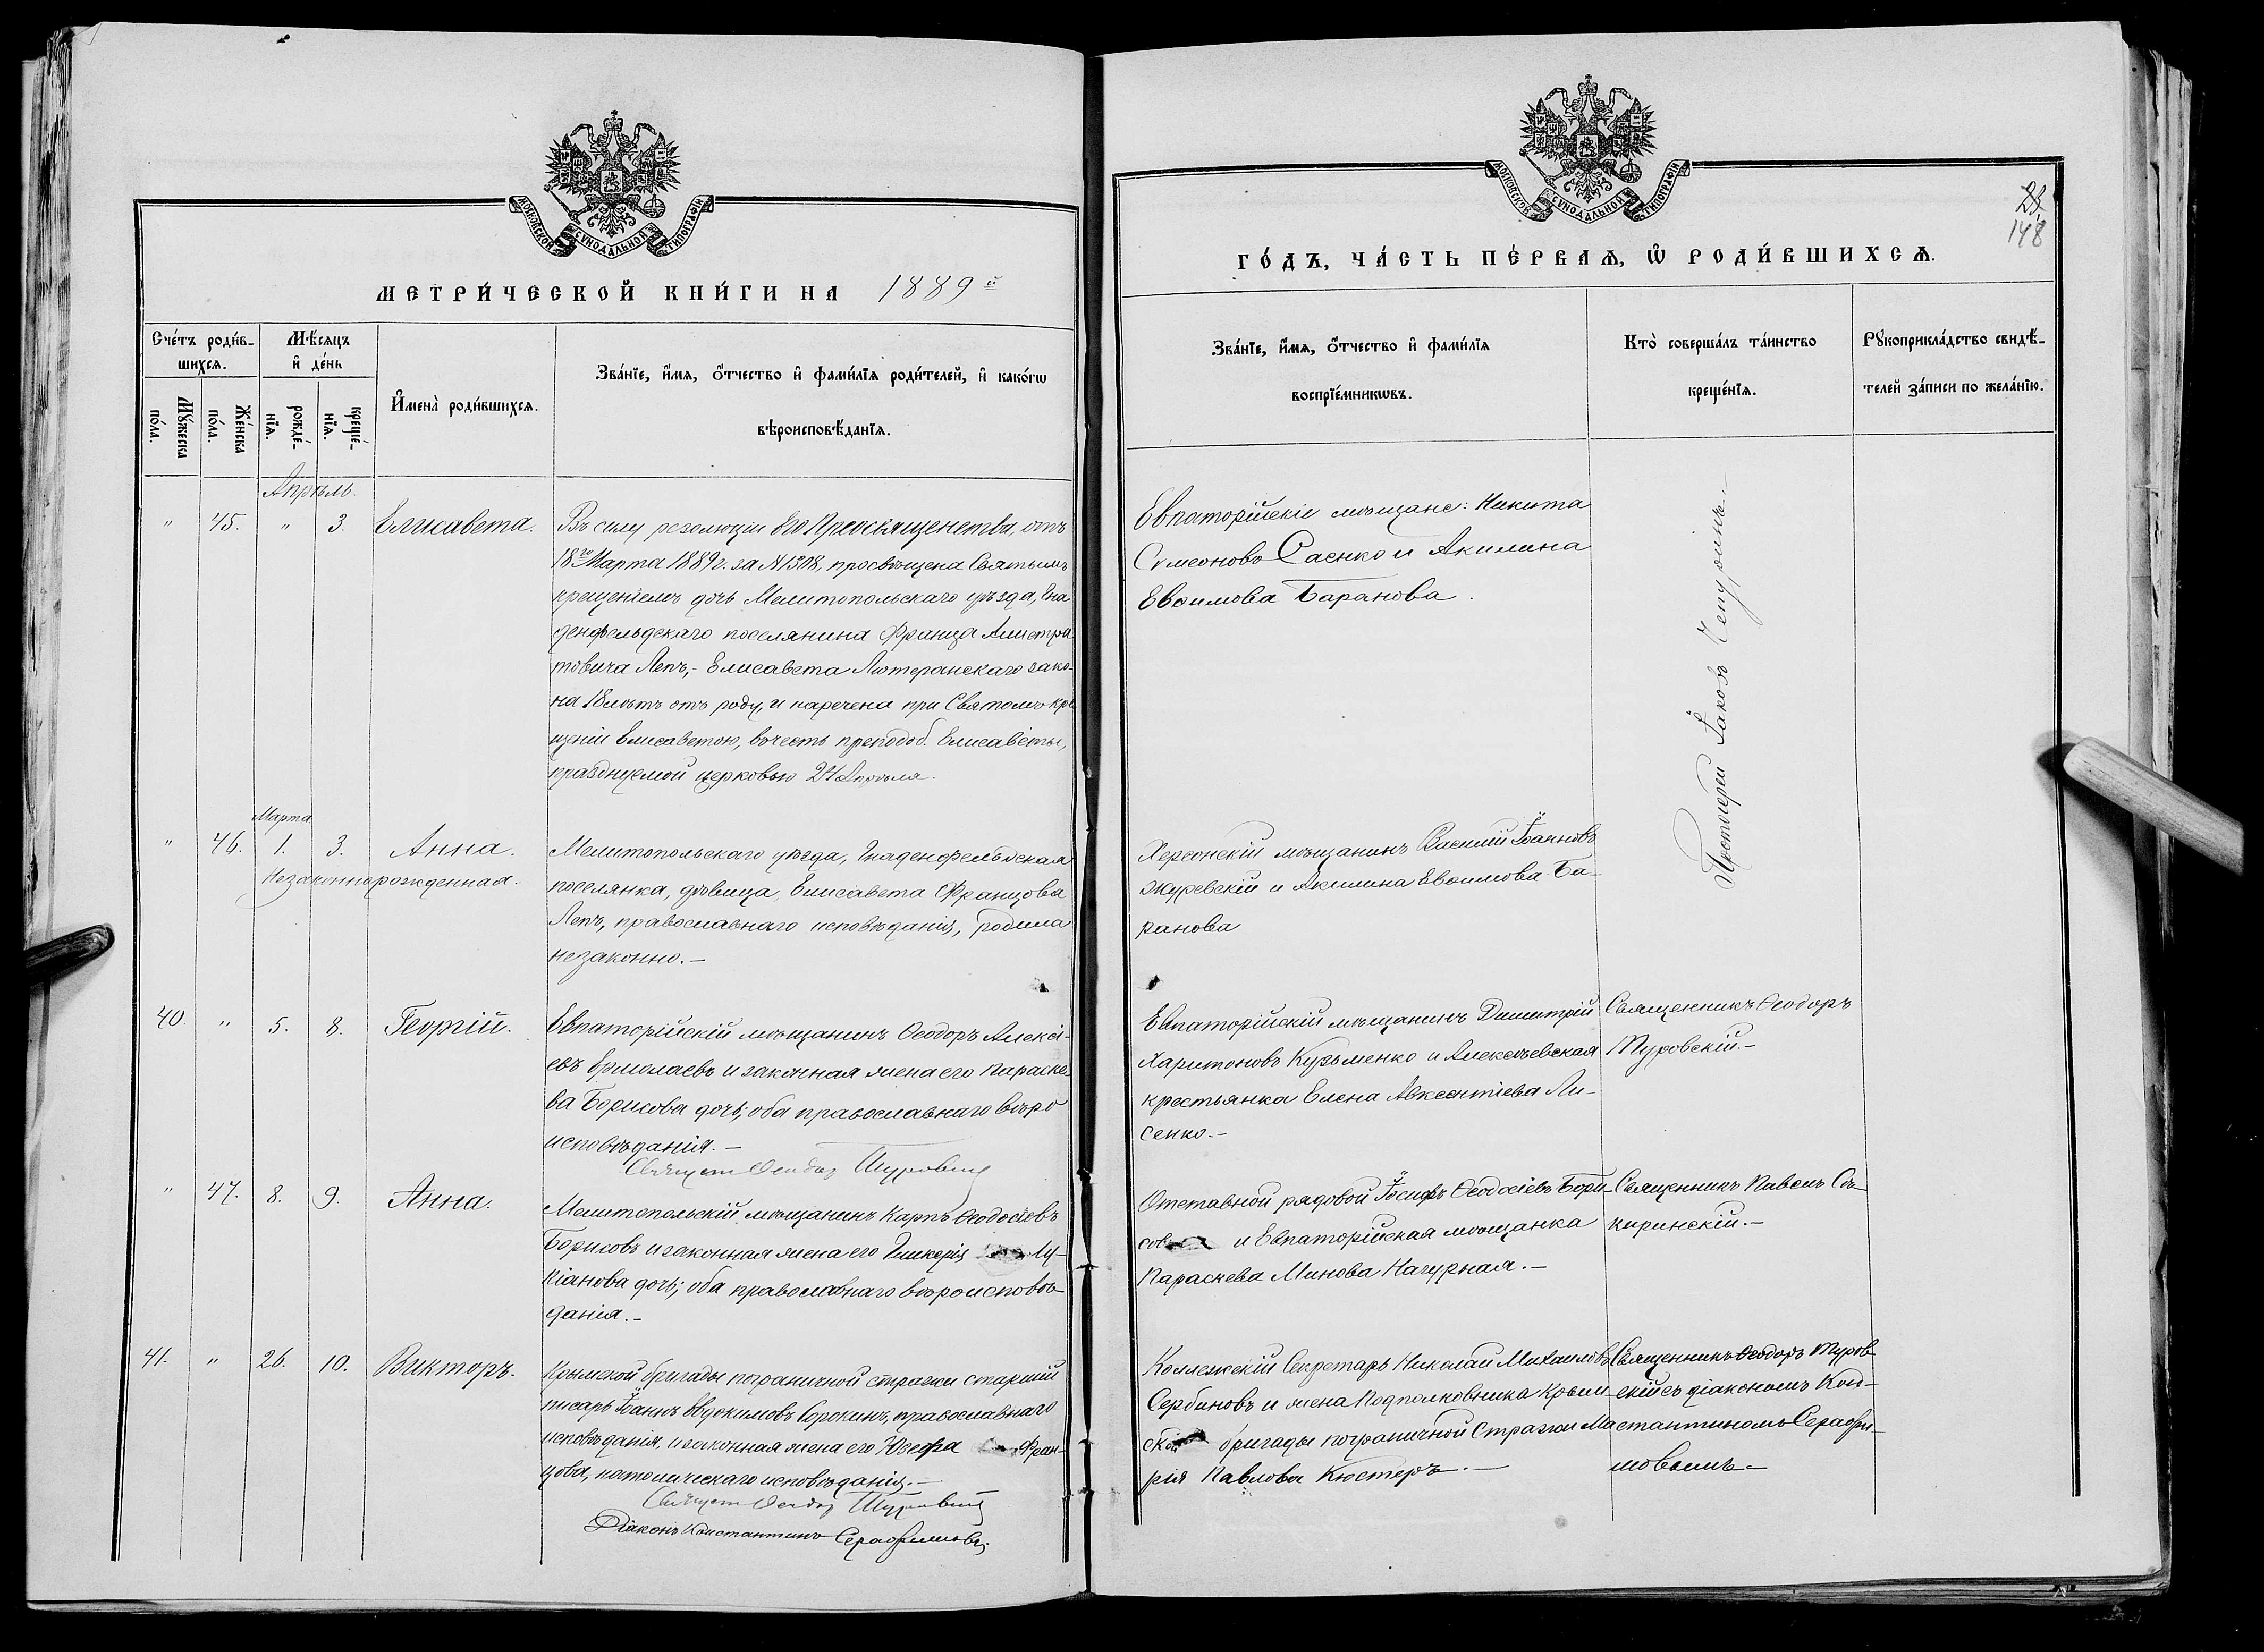 МОСКОВСКОЙ СѴНОДАЛЬНОЙ ТИПОГРАФІИ
МЕТРИ́ЧЕСКОЙ КНИ́ГИ НА 1889й
Сче́тъ роди́в-
шихсѧ.
Мѣ́сѧцъ
и҆ де́нь
Мꙋ́жеска
по́ла.
Же́нска
по́ла.
рожде́-
нїѧ.
креще́-
нїѧ.
И҆мена̀ роди́вшихсѧ.
Зва́нїе, и҆́мѧ, ѻ҆́тчество и҆ фамі́лїѧ роди́телей, и҆ како́гѡ
вѣроисповѣ́данїѧ.
Апрѣль.
" 45. " 3. Елисавета.
Въ силу резолюціи Его Преосвященства, отъ
18го Марта 1889 г. за № 1508, просвѣщена Святымъ
крещеніемъ дочь Мелитопольскаго уѣзда, Гна
денфельдскаго поселянина Франца
товича Лепъ,- Елисавета Лютеранскаго зако-
на 18 лѣтъ отъ роду, и наречена при Святомъ кре
щеніи Елисаветою, въ честь преподоб. Елисаветы,
празднуемой церковью 24 Апрѣля.
Марта
" 46. 1. 3. Анна.
Незаконнорожденная.
Мелитопольскаго уѣзда, Гнаденфельдская
поселянка, дѣвица, Елисавета Францова
Лепъ, православнаго исповѣданія, родила
незаконно.—
40. " 5. 8. Георгій.
Евпаторійскій мѣщанинъ Ѳеодоръ Алексі-
евъ Ермолаевъ и законная жена его Параске-
ва Борисова дочь; оба православнаго вѣро
исповѣданія.—
Священ Ѳеодор Туровскій
" 47. 8. 9. Анна.
Мелитопольскій мѣщанинъ Карпъ Ѳеодосіевъ
Борисовъ и законная жена его Гликерія Лу-
кіанова дочь; оба православнаго вѣроисповѣ-
данія.—
41. " 26. 10. Викторъ.
Крымской бригады пограничной стражи старшій
писарь Іоаннъ Евдокимовъ Сорокинъ, православнаго
исповѣданія, и законная жена его Юзефа Фран-
цова, католическаго исповѣданія.—
Священ Ѳеодор Туровскій
Діаконъ Константинъ Серафимовъ.
МОСКОВСКОЙ СѴНОДАЛЬНОЙ ТИПОГРАФІИ
148
ГО́ДЪ, ЧА́СТЬ ПЕ́РВАѦ, Ѡ҆ РОДИ́ВШИХСѦ.
Зва́нїе, и҆́мѧ, ѻ҆́тчество и҆ фамі́лїѧ
воспрїе́мникѡвъ.
Кто̀ соверша́лъ та́инство
креще́нїѧ.
Рꙋкоприкла́дство свидѣ́-
телей за́писи по жела́нїю.
Евпаторійскіе мѣщане: Никита
Сѵмеоновъ Саенко и Акилина
Евѳимова Баранова.
Протоіерей Іаковъ
Херсонскій мѣщанинъ Василій Іоанновъ
журевскій и Акилина Евѳимова Ба-
ранова
Евпаторійскій мѣщанинъ Димитрій
Харитоновъ Кузьменко и Алексѣевская
крестьянка Елена Авксентіева Ли-
сенко.—
Священникъ Ѳеодоръ
Туровскій.—
Отставной рядовой Іосифъ Ѳеодосіевъ Бори-
совъ и Евпаторійская мѣщанка
Параскева Минова Нагурная.—
Священникъ Павелъ Со-
киринскій.—
Коллежскій Секретарь Николай Михаиловъ
Сербиновъ и жена Подполковника Крым-
ской бригады пограничной стражи Ма
рія Павлова Кюстеръ.—
Священникъ Ѳеодоръ Туров-
скій съ діакономъ Кон-
стантиномъ Серафи-
мовымъ—